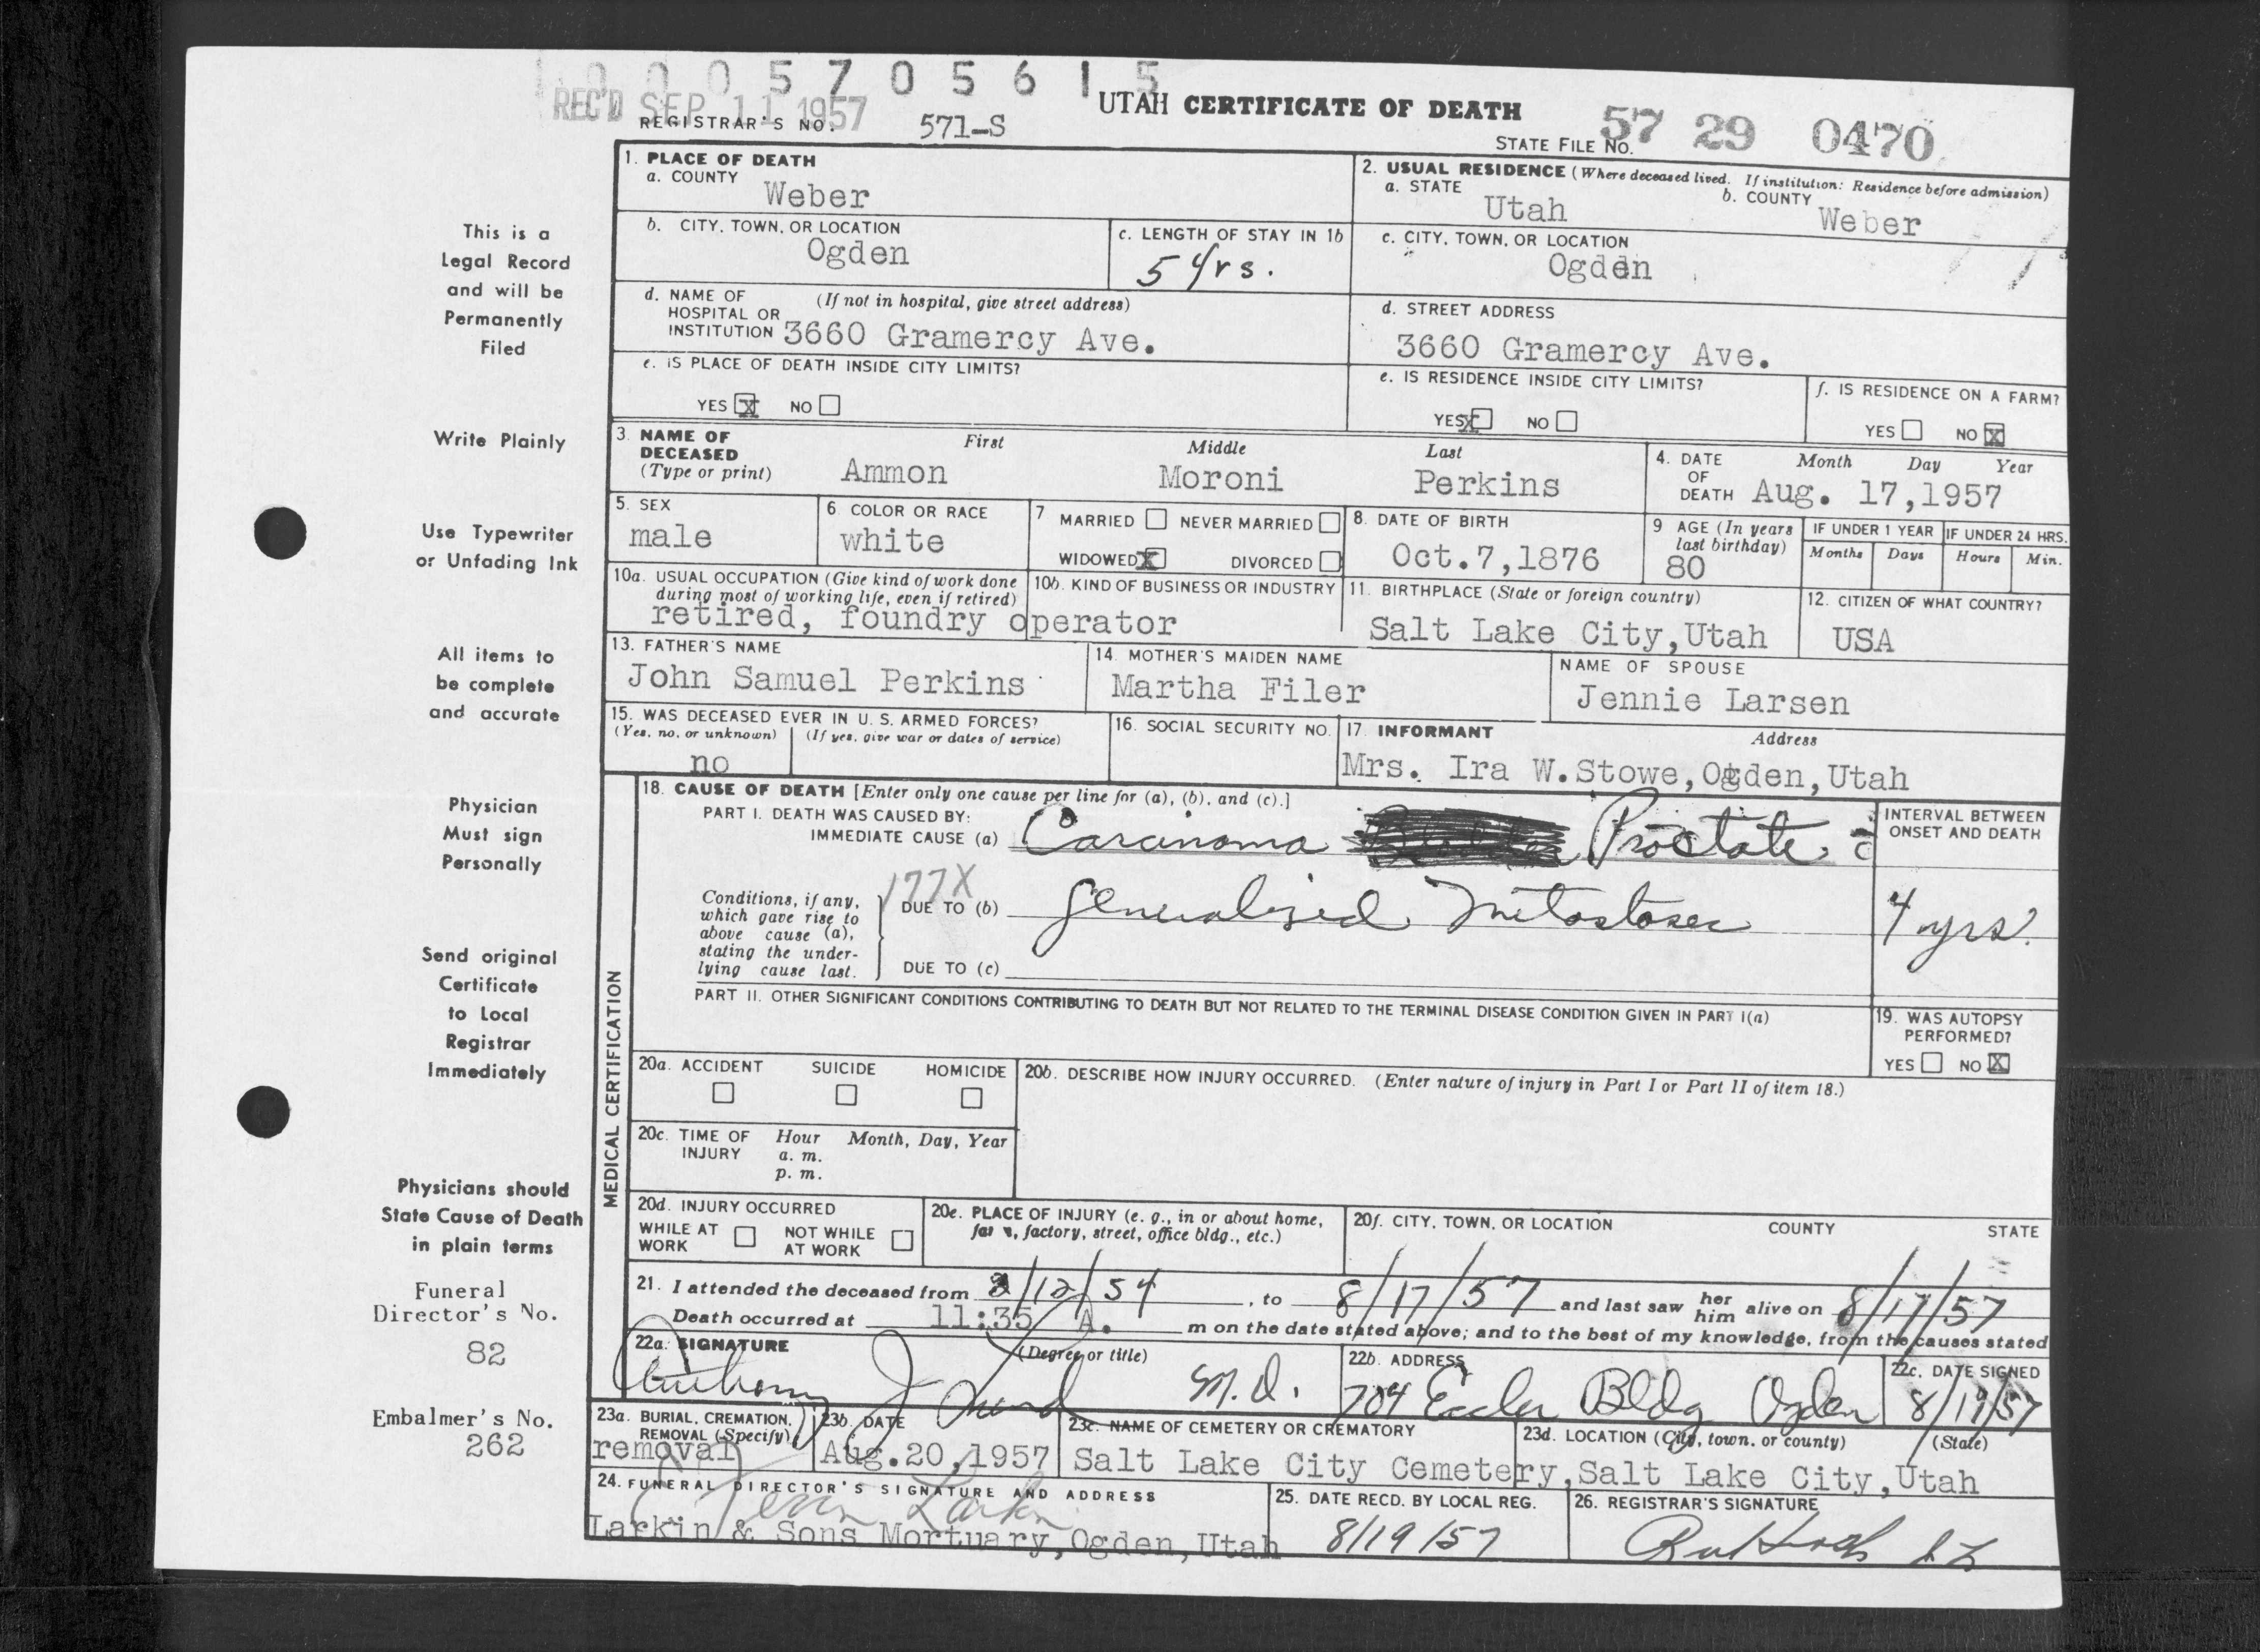 10005705615
REC'D SEP 11 1957
UTAH CERTIFICATE OF DEATH
REGISTRAR'S NO. 571-S
STATE FILE NO. 57 29 0470
1. PLACE OF DEATH
a. COUNTY Weber
2. USUAL RESIDENCE (Where deceased lived. If institution: Residence before admission)
a. STATE Utah b. COUNTY Weber
b. CITY, TOWN, OR LOCATION Ogden
c. LENGTH OF STAY IN 1b 5 yrs.
c. CITY, TOWN, OR LOCATION Ogden
d. NAME OF HOSPITAL OR INSTITUTION (If not in hospital, give street address) 3660 Gramercy Ave.
d. STREET ADDRESS 3660 Gramercy Ave.
e. IS PLACE OF DEATH INSIDE CITY LIMITS?
YES X NO
e. IS RESIDENCE INSIDE CITY LIMITS?
YES X NO
f. IS RESIDENCE ON A FARM?
YES NO X
3. NAME OF DECEASED (Type or print) First Middle Last
Ammon Moroni Perkins
4. DATE OF DEATH Month Day Year
Aug. 17,1957
5. SEX male
6. COLOR OR RACE white
7 MARRIED NEVER MARRIED
WIDOWED X DIVORCED
8. DATE OF BIRTH Oct.7,1876
9 AGE (In years last birthday) 80
IF UNDER 1 YEAR Months Days
IF UNDER 24 HRS. Hours Min.
10a. USUAL OCCUPATION (Give kind of work done during most of working life, even if retired)
10b. KIND OF BUSINESS OR INDUSTRY
retired, foundry operator
11. BIRTHPLACE (State or foreign country) Salt Lake City,Utah
12. CITIZEN OF WHAT COUNTRY? USA
13. FATHER'S NAME John Samuel Perkins
14. MOTHER'S MAIDEN NAME Martha Filer
NAME OF SPOUSE Jennie Larsen
15. WAS DECEASED EVER IN U. S. ARMED FORCES?
(Yes, no, or unknown) (If yes, give war or dates of service)
no
16. SOCIAL SECURITY NO.
17. INFORMANT Address
Mrs. Ira W.Stowe,Ogden,Utah
MEDICAL CERTIFICATION
18. CAUSE OF DEATH [Enter only one cause per line for (a), (b), and (c).]
PART I. DEATH WAS CAUSED BY:
IMMEDIATE CAUSE (a) Carcinoma Prostate c̄
INTERVAL BETWEEN ONSET AND DEATH
177X
Conditions, if any, which gave rise to above cause (a), stating the underlying cause last.
DUE TO (b) Generalized Metastases
4 yrs.
DUE TO (c)
PART II. OTHER SIGNIFICANT CONDITIONS CONTRIBUTING TO DEATH BUT NOT RELATED TO THE TERMINAL DISEASE CONDITION GIVEN IN PART I(a)
19. WAS AUTOPSY PERFORMED?
YES NO X
20a. ACCIDENT SUICIDE HOMICIDE
20b. DESCRIBE HOW INJURY OCCURRED. (Enter nature of injury in Part I or Part II of item 18.)
20c. TIME OF INJURY Hour Month, Day, Year
a. m.
p. m.
20d. INJURY OCCURRED
WHILE AT WORK NOT WHILE AT WORK
20e. PLACE OF INJURY (e. g., in or about home, farm, factory, street, office bldg., etc.)
20f. CITY, TOWN, OR LOCATION COUNTY STATE
21. I attended the deceased from 2/12/54, to 8/17/57 and last saw her him alive on 8/17/57
Death occurred at 11:35 A. m on the date stated above; and to the best of my knowledge, from the causes stated
22a. SIGNATURE (Degree or title)
Anthony J Lund M.D.
22b. ADDRESS 704 Eccles Bldg Ogden
22c. DATE SIGNED 8/19/57
23a. BURIAL, CREMATION, REMOVAL (Specify) removal
23b. DATE Aug.20,1957
23c. NAME OF CEMETERY OR CREMATORY
23d. LOCATION (City, town, or county) (State)
Salt Lake City Cemetery,Salt Lake City,Utah
24. FUNERAL DIRECTOR'S SIGNATURE AND ADDRESS
Larkin
Larkin & Sons Mortuary,Ogden,Utah
25. DATE RECD. BY LOCAL REG. 8/19/57
26. REGISTRAR'S SIGNATURE
This is a
Legal Record
and will be
Permanently
Filed
Write Plainly
Use Typewriter
or Unfading Ink
All items to
be complete
and accurate
Physician
Must sign
Personally
Send original
Certificate
to Local
Registrar
Immediately
Physicians should
State Cause of Death
in plain terms
Funeral
Director's No.
82
Embalmer's No.
262